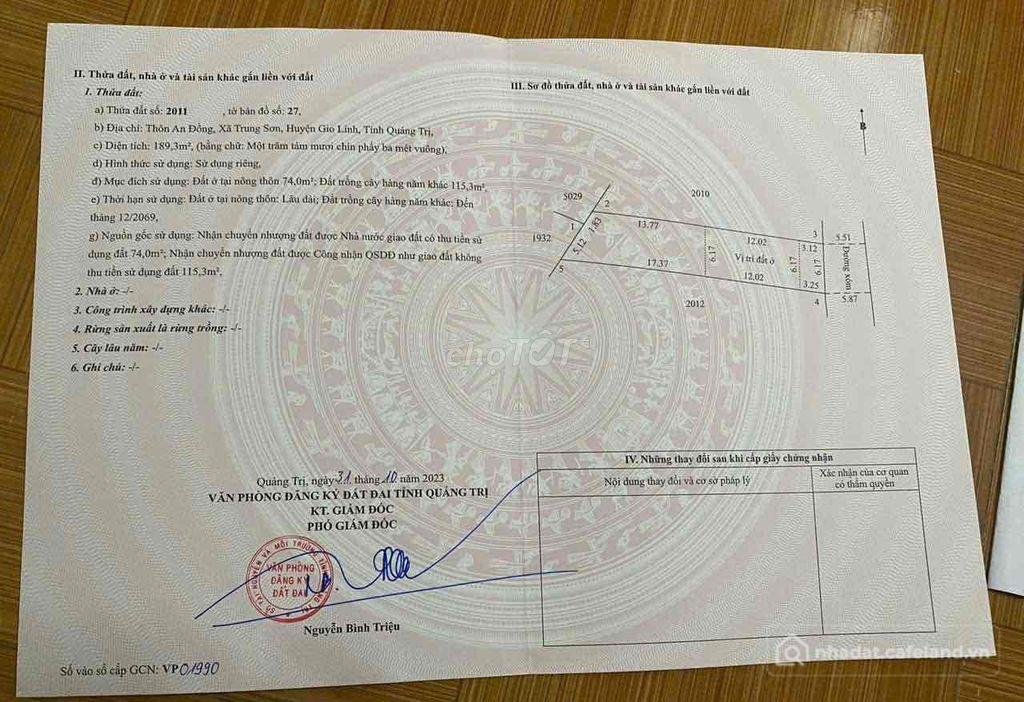 II. Thửa đất, nhà ở và tài sản khác gắn liền với đất
1. Thửa đất:
a) Thửa đất số: 2011 , tờ bản đồ số: 27,
b) Địa chỉ: Thôn An Đồng, Xã Trung Sơn, Huyện Gio Linh, Tỉnh Quảng Trị,
c) Diện tích: 189,3m², (bằng chữ: Một trăm tám mươi chín phẩy ba mét vuông),
d) Hình thức sử dụng: Sử dụng riêng,
đ) Mục đích sử dụng: Đất ở tại nông thôn 74,0m²; Đất trồng cây hàng năm khác 115,3m²,
e) Thời hạn sử dụng: Đất ở tại nông thôn: Lâu dài; Đất trồng cây hàng năm khác: Đến
tháng 12/2069,
g) Nguồn gốc sử dụng: Nhận chuyển nhượng đất được Nhà nước giao đất có thu tiền sử
dụng đất 74,0m²; Nhận chuyển nhượng đất được Công nhận QSDĐ như giao đất không
thu tiền sử dụng đất 115,3m²,
2. Nhà ở: -/-
3. Công trình xây dựng khác: -/-
4. Rừng sản xuất là rừng trồng: -/-
5. Cây lâu năm: -/-
6. Ghi chú: -/-
Quảng Trị, ngày 31 tháng 10 năm 2023
VĂN PHÒNG ĐĂNG KÝ ĐẤT ĐAI TỈNH QUẢNG TRỊ
KT. GIÁM ĐỐC
PHÓ GIÁM ĐỐC
VĂN PHÒNG
ĐĂNG KÝ
ĐẤT ĐAI
Nguyễn Bình Triệu
Số vào sổ cấp GCN: VP01990
III. Sơ đồ thửa đất, nhà ở và tài sản khác gắn liền với đất
B
5029
2010
1932
2012
1
2
3
4
5
1.83
5.12
13.77
17.37
6.17
12.02
Vị trí đất ở
12.02
6.17
3.12
6.17
3.25
5.51
Đường xóm
5.87
IV. Những thay đổi sau khi cấp giấy chứng nhận
Nội dung thay đổi và cơ sở pháp lý
Xác nhận của cơ quan
có thẩm quyền
chợTỐT
nhadat.cafeland.vn